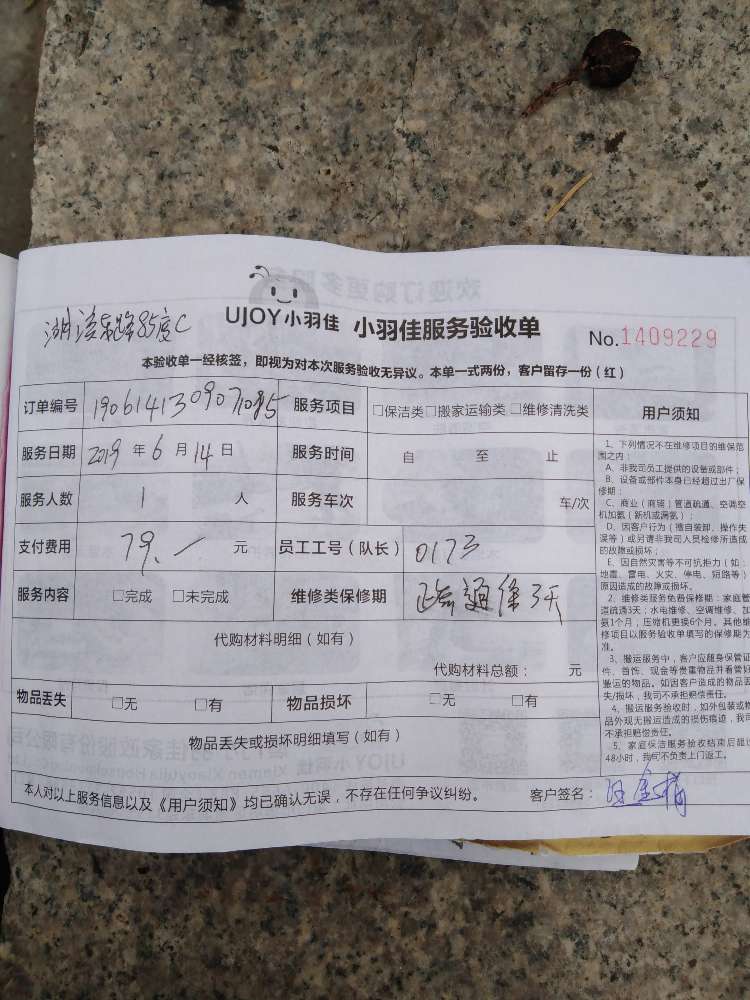 湖滨东路85度C
UJOY小羽佳 小羽佳服务验收单 No.1409229
本验收单一经核签，即视为对本次服务验收无异议。本单一式两份，客户留存一份（红）
订单编号 190614130907 服务项目 □保洁类□搬家运输类□维修清洗类 用户须知
服务日期 2019年6月14日 服务时间 自 至 止
服务人数 1 人 服务车次 车/次
支付费用 79.— 元 员工工号（队长） 0173
服务内容 □完成 □未完成 维修类保修期 疏通保3天
代购材料明细（如有）
代购材料总额： 元
物品丢失 □无 □有 物品损坏 □无 □有
物品丢失或损坏明细填写（如有）
本人对以上服务信息以及《用户须知》均已确认无误，不存在任何争议纠纷。 客户签名：
1、下列情况不在维修项目的维保范
围之内：
A、非我司员工提供的设备或部件；
B、设备或部件本身已经超过出厂保
修期；
C、商业（商铺）管道疏通、空调空
机加氨（新机或漏氨）；
D、因客户行为（擅自装卸、操作失
误等）或另请非我司人员检修所造成
的故障或损坏；
E、因自然灾害等不可抗拒力（如：
地震、雷电、火灾、停电、短路等）
原因造成的故障或损坏。
2、维修类服务免费保修期：家庭管
道疏通3天；水电维修、空调维修、加
氨1个月，压缩机更换6个月。其他维
修项目以服务验收单填写的保修期为
准。
3、搬运服务中，客户应随身保管证
件、首饰、现金等贵重物品并看管好
搬运的物品。如因客户造成的物品丢
失/损坏，我司不承担赔偿责任。
4、搬运服务验收时，如外包装或物
品外观无搬运造成的损伤痕迹，我司
不承担赔偿责任。
5、家庭保洁服务验收结束后超过
48小时，我司不负责上门返工。